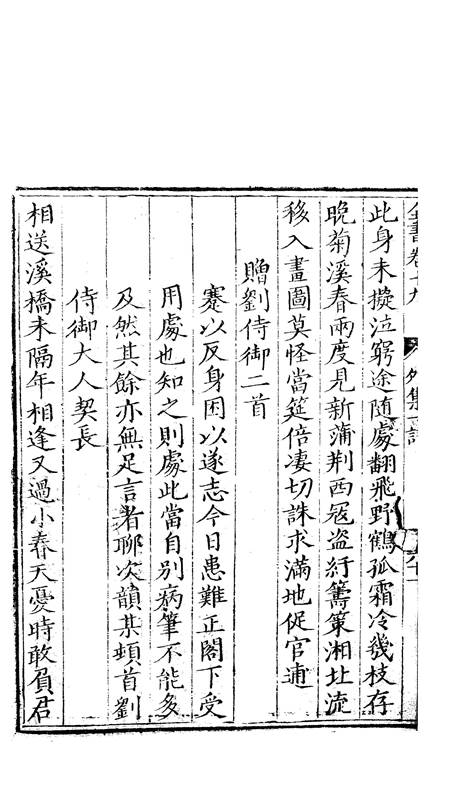 全書卷十九 外集一 詩
此身未擬泣窮途隨處翻飛野鶴孤霜冷幾枝存
晚菊溪春兩度見新蒲荆西寇盗紆籌策湘北流
移入畫圖莫怪當筵倍凄切誅求滿地促官逋
贈劉侍御二首
蹇以反身困以遂志今日患難正閣下受
用處也知之則處此當自别病筆不能多
及然其餘亦無足言者聊次韻某頓首劉
侍御大人契長
相送溪橋未隔年相逢又過小春天憂時敢負君